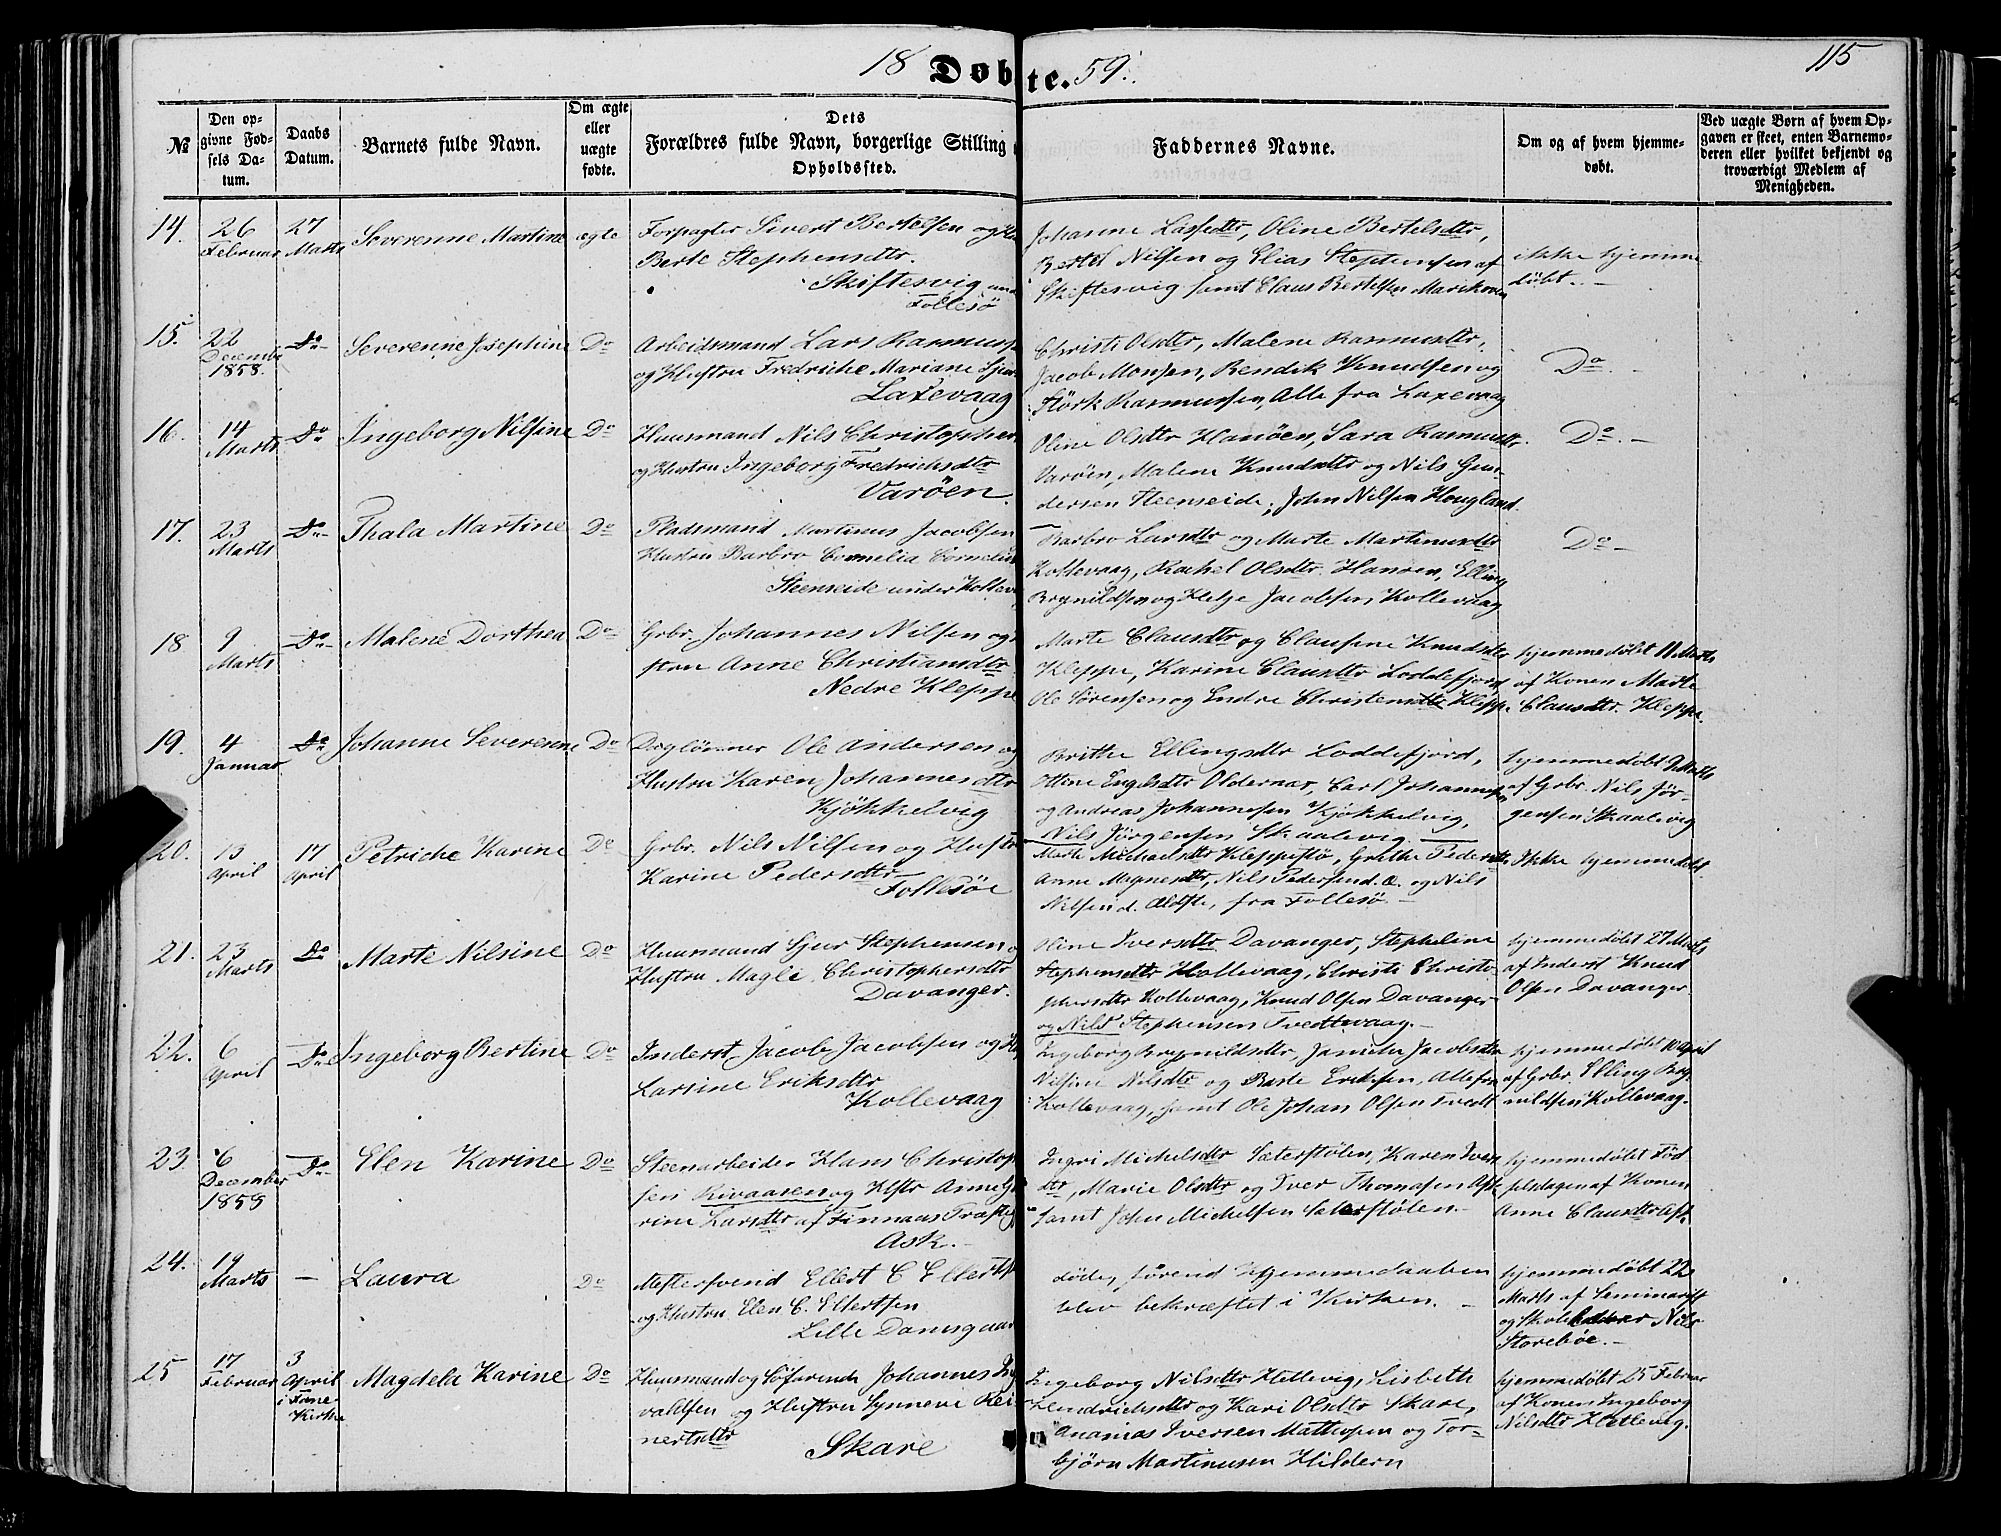 18 Døbte. 59.
115
№
Den opgivne Fødsels Datum.
Daabs Datum.
Barnets fulde Navn.
Om ægte eller uægte fødte.
Dets Forældres fulde Navn, borgerlige Stilling
Opholdssted.
Faddernes Navne.
Om og af hvem hjemmedøbt.
Ved uægte Børn af hvem Opgaven er skeet, enten Barnemoderen eller hvilket bekjendt og troværdigt Medlem af Menigheden.
14. 26 Februar 27 Marts Severenne Martine ægte
Forpagter Sivert Bertelsen og
Berte Stephensdtr.
Skiftesvig
Follesö
Johanne Lassedtr, Oline Bertelsdtr,
Bertel Nilsen og Elias Stephensen af
Skiftesvig samt Claus Bertelsen
ikke hjemme
döbt.
15. 22 Decembr 1858. Do Severenne Josephine Do
Arbeidsmand Lars Rasmus
og Hustru Fredriche Mariane
Laxevaag
Christi Olsdtr, Malene Rasmusdtr,
Jacob Monsen, Bendik Knudsen og
Störk Rasmussen, Alle fra Laxevaag
Do
16. 14 Marts Do Ingeborg Nilsine Do
Huusmand Nils Christophe
og Hustru Ingeborg Fredrichsdtr
Varöen.
Oline Olsdtr Hanöen, Sara Rasmusdtr.
Varöen, Malene Knudsdtr og Nils Gun-
dersen Steenseide, John Nilsen Hougland.
Do.
17. 23 Marts Do Thala Martine Do
Pladsmand Martinus Jacobsen
Hustru Barbro Cornelia Corneliu
Steenseide under Kolleva
Barbro Larsdtr og Marte Martinusdtr
Kollevaag, Rachel Olsdtr. Hanöen, Elling
Brynildsen og Helje Jacobsen, Kollevaag
Do
18 9 Marts Do Malene Dorthea Do
Grbr. Johannes Nilsen og
stru Anne Christiansdtr
Nedre Kleppe
Marte Clausdtr og Clausine Knudsdtr
Kleppe, Karine Clausdtr Loddefjord,
Ole Sörensen og Endre Christensdtr Kleppe
hjemmedöbt 11 Marts
af Konen Marte
Clausdtr. Kleppe.
19. 4 Januar Do Johanne Severenne Do
Daglönner Ole Andersen og
Hustru Karen Johannesdtr
Kjökkelvig
Brithe Ellingsdtr Loddefjord,
Ottine Engelsdtr Oldernæs, Carl Johannesen
og Andreas Johannesen Kjökkelvig,
Nils Jörgensen Skaalevig
hjemmedöbt 9 Marts
af Grbr. Nils Jör-
gensen Skaalevig
20. 13 April 17 April Petriche Karine Do
Grbr. Nils Nilsen og Hustr
Karine Pedersdtr
Follesöe
Marte Michaelsdtr Kleppestö, Grethe Pedersdtr
Anne Magnesdtr, Nils Pedersen d. æ. og Nils
Nilsen d. Ældste, fra Follesö.
Ikke hjemmedöbt.
21. 23 Marts Do Marte Nilsine Do
Huusmand Sjur Stephensen
Hustru Magli Christophersdtr
Davanger.
Oline Iversdtr Davanger, Stepheline
Stephensdtr Hollevaag, Christi Christo-
phersdtr Kollevaag, Knud Olsen Davanger
og Nils Stephensen Tvedtevaag.
hjemmedöbt 27 Marts
af Inderst Knud
Olsen Davanger
22. 6 April Do Ingeborg Bertine Do
Inderst Jacob Jacobsen og H
Larsine Eriksdtr
Kollevaag
Ingeborg Brynildsdtr, Jacobsdtr
Nilsine Nilsdtr og Berte Eriksen, Alle fra
Kollevaag, samt Ole Johan Olsen Tvedt
hjemmedöbt 10 April
af Grbr. Elling Bry-
nildsen Kollevaag.
23. 6 December 1858 Do Elen Karine Do
Steenarbeider Hans Christop
sen Rivaasen og Hstr Anne
rine Larsdtr af Finnaas
Ask.
Ingri Michelsdtr Sæterstölen, Karen Ivers
dtr, Marie Olsdtr og Iver Thomasen Ask
samt John Michelsen Sæterstölen.
hjemmedöbt Fød
selsdagen af Konen
Anne Clausdtr Ask.
24. 19 Marts — Laura Do
Mestersvend Ellert C Ellertse
og Hustru Elen C. Ellertsen
Lille Damsgaar
döde, förend Hjemmedaaben
blev bekræftet i Kirken.
hjemmedöbt 22
Marts af Seminarist
og Skolelærer Nils
Storeböe.
25 17 Februar 3 April i Fane Kirke Magdela Karine Do
Huusmand og Söfarende Johannes Ing
valdsen og Hustru Synneve Rei
nertsdtr
Skare
Ingeborg Nilsdtr Hetlevig, Lisbeth
Hendrichsdtr og Kari Olsdtr Skare,
Ananias Iversen Mathopen og Tor-
björn Martinusen Hildern
hjemmedöbt 25 Februar
af Konen Ingeborg
Nilsdtr Hetlevig.